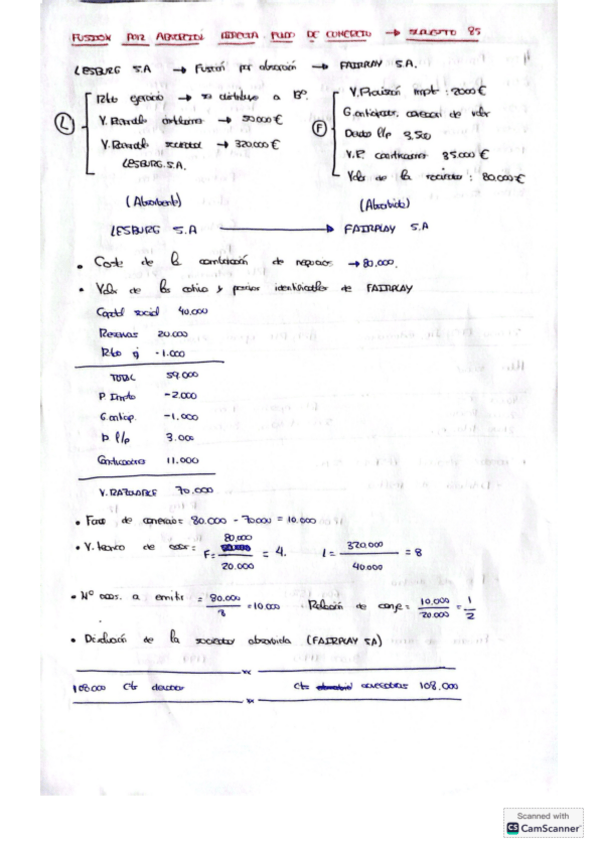 FUSIÓN POR ABSORCIÓN DE CONCRETO → 85
LESBURG S.A → Fusión por absorción → FAIRPLAY S.A.
L
Rdo ejercicio → se distribuye a Bº
V. Razonable → 50.000 €
V. Razonable sociedad → 320.000 €
LESBURG S.A.
(Absorbente)
F
V. Provisión impto: 2000 €
G. anticipados, carecen de valor
Deuda l/p
V.R. construcciones 85.000 €
Valor de la sociedad: 80.000 €
(Absorbida)
LESBURG S.A → FAIRPLAY S.A
• Coste de la combinación de negocios → 80.000.
• Valor de los activos y pasivos identificables de FAIRPLAY
Capital social 40.000
Reservas 20.000
Rdo ej -1.000
TOTAL 59.000
P. Impto -2.000
G. anticip. -1.000
D l/p 3.000
Construcciones 11.000
V. RAZONABLE 70.000
• Fondo de comercio = 80.000 - 70000 = 10.000
• V. teórico de = F = 80.000 / 20.000 = 4. L = 320.000 / 40.000 = 8
• Nº accs. a emitir = 80.000 / 8 = 10.000 Relación de canje = 10,000 / 20.000 = 1/2
• Disolución de la sociedad absorbida (FAIRPLAY SA)
108.000 Cts deudoras Cts acreedoras 108.000